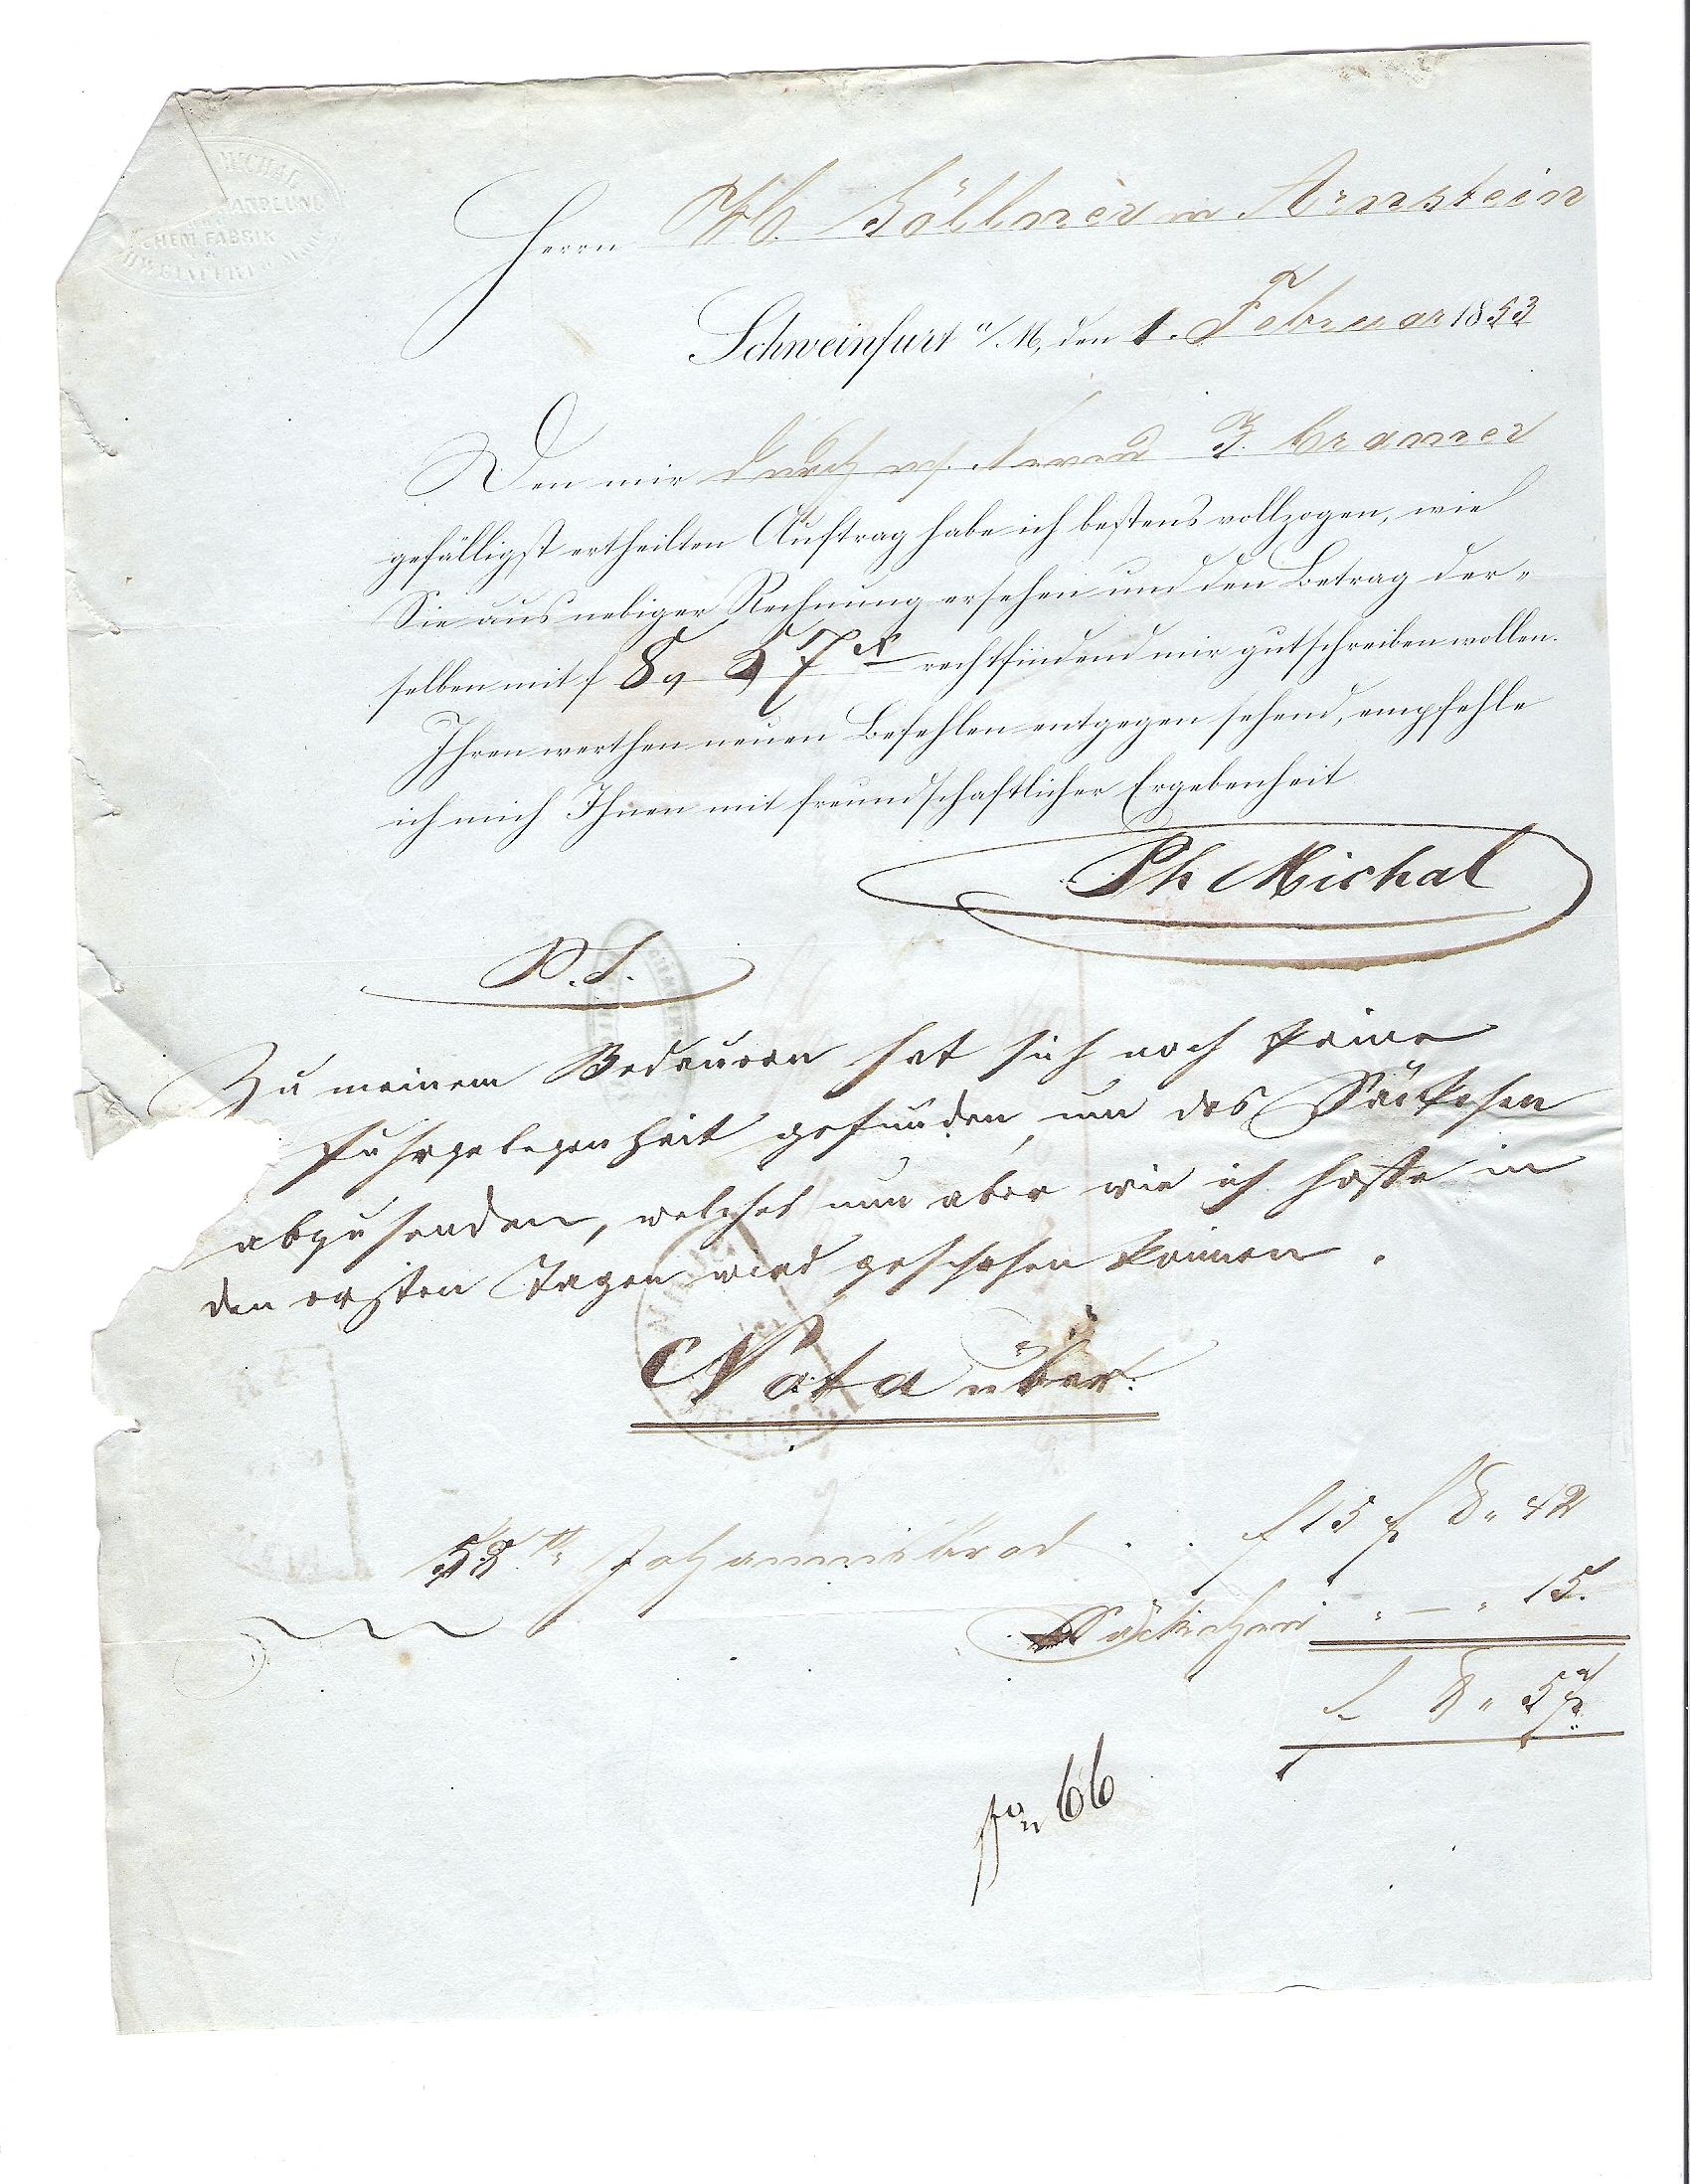 MICHAL
HANDLUNG
CHEM. FABRIK
Herrn Söllner in Arnstein
Schweinfurt a/M, den 1. Februar 1853
Den mir durch m. Freund J. Cramer
gefälligst ertheilten Auftrag habe ich bestens vollzogen, wie
Sie aus nebiger Rechnung ersehen und den Betrag der-
selben mit f 8, 57 x rechtfindend mir gutschreiben wollen.
Ihren werthen neuen Befehlen entgegen sehend, empfehle
ich mich Ihnen mit freundschaftlicher Ergebenheit
Ph Michal
P.S.
Zu meinem Bedauren hat sich noch keine
Fuhrgelegenheit gefunden, um das Säckchen
abzusenden, welches nun aber wie ich hoffe in
den ersten Tagen wird geschehen können.
Nota über.
58 ℔ Johannisbrod . . f 15 f 8 " 42
Säckchen " — " 15.
f 8 " 57
66